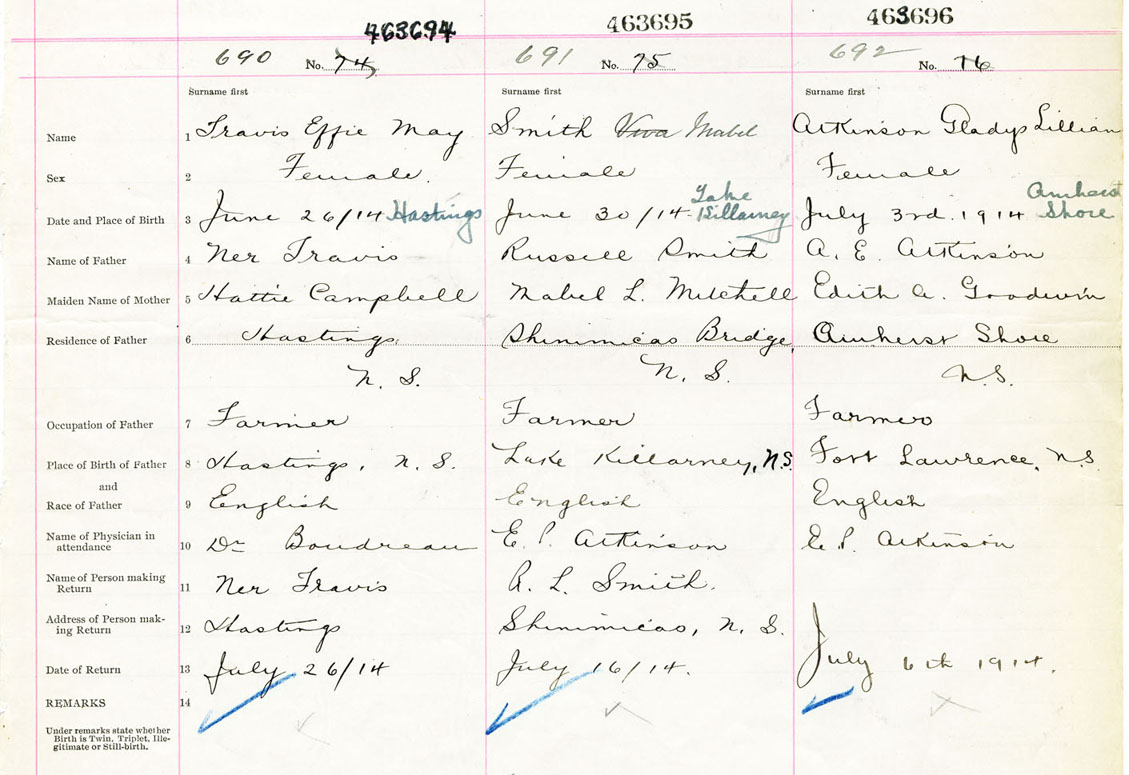 463694 463695 463696
690 No. 74 691 No. 75 692 No. 76
Surname first Surname first Surname first
Name 1 Travis Effie May Smith Viva Mabel Atkinson Gladys Lillian
Sex 2 Female. Female Female
Date and Place of Birth 3 June 26/14 Hastings June 30/14 Lake Killarney July 3rd. 1914 Amherst Shore
Name of Father 4 Ner Travis Russell Smith A. E. Atkinson
Maiden Name of Mother 5 Hattie Campbell Mabel L. Mitchell Edith A. Goodwin
Residence of Father 6 Hastings, Shinimicas Bridge, Amherst Shore
N. S. N. S. N.S.
Occupation of Father 7 Farmer Farmer Farmer
Place of Birth of Father 8 Hastings, N. S. Lake Killarney, N.S. Fort Lawrence, N.S.
and
Race of Father 9 English English English
Name of Physician in
attendance 10 Dr Boudreau E. P. Atkinson E. P. Atkinson
Name of Person making
Return 11 Ner Travis A. L. Smith.
Address of Person mak-
ing Return 12 Hastings Shinimicas, N. S.
Date of Return 13 July 26/14 July 16/14. July 6th 1914.
REMARKS 14
Under remarks state whether
Birth is Twin, Triplet, Ille-
gitimate or Still-birth.